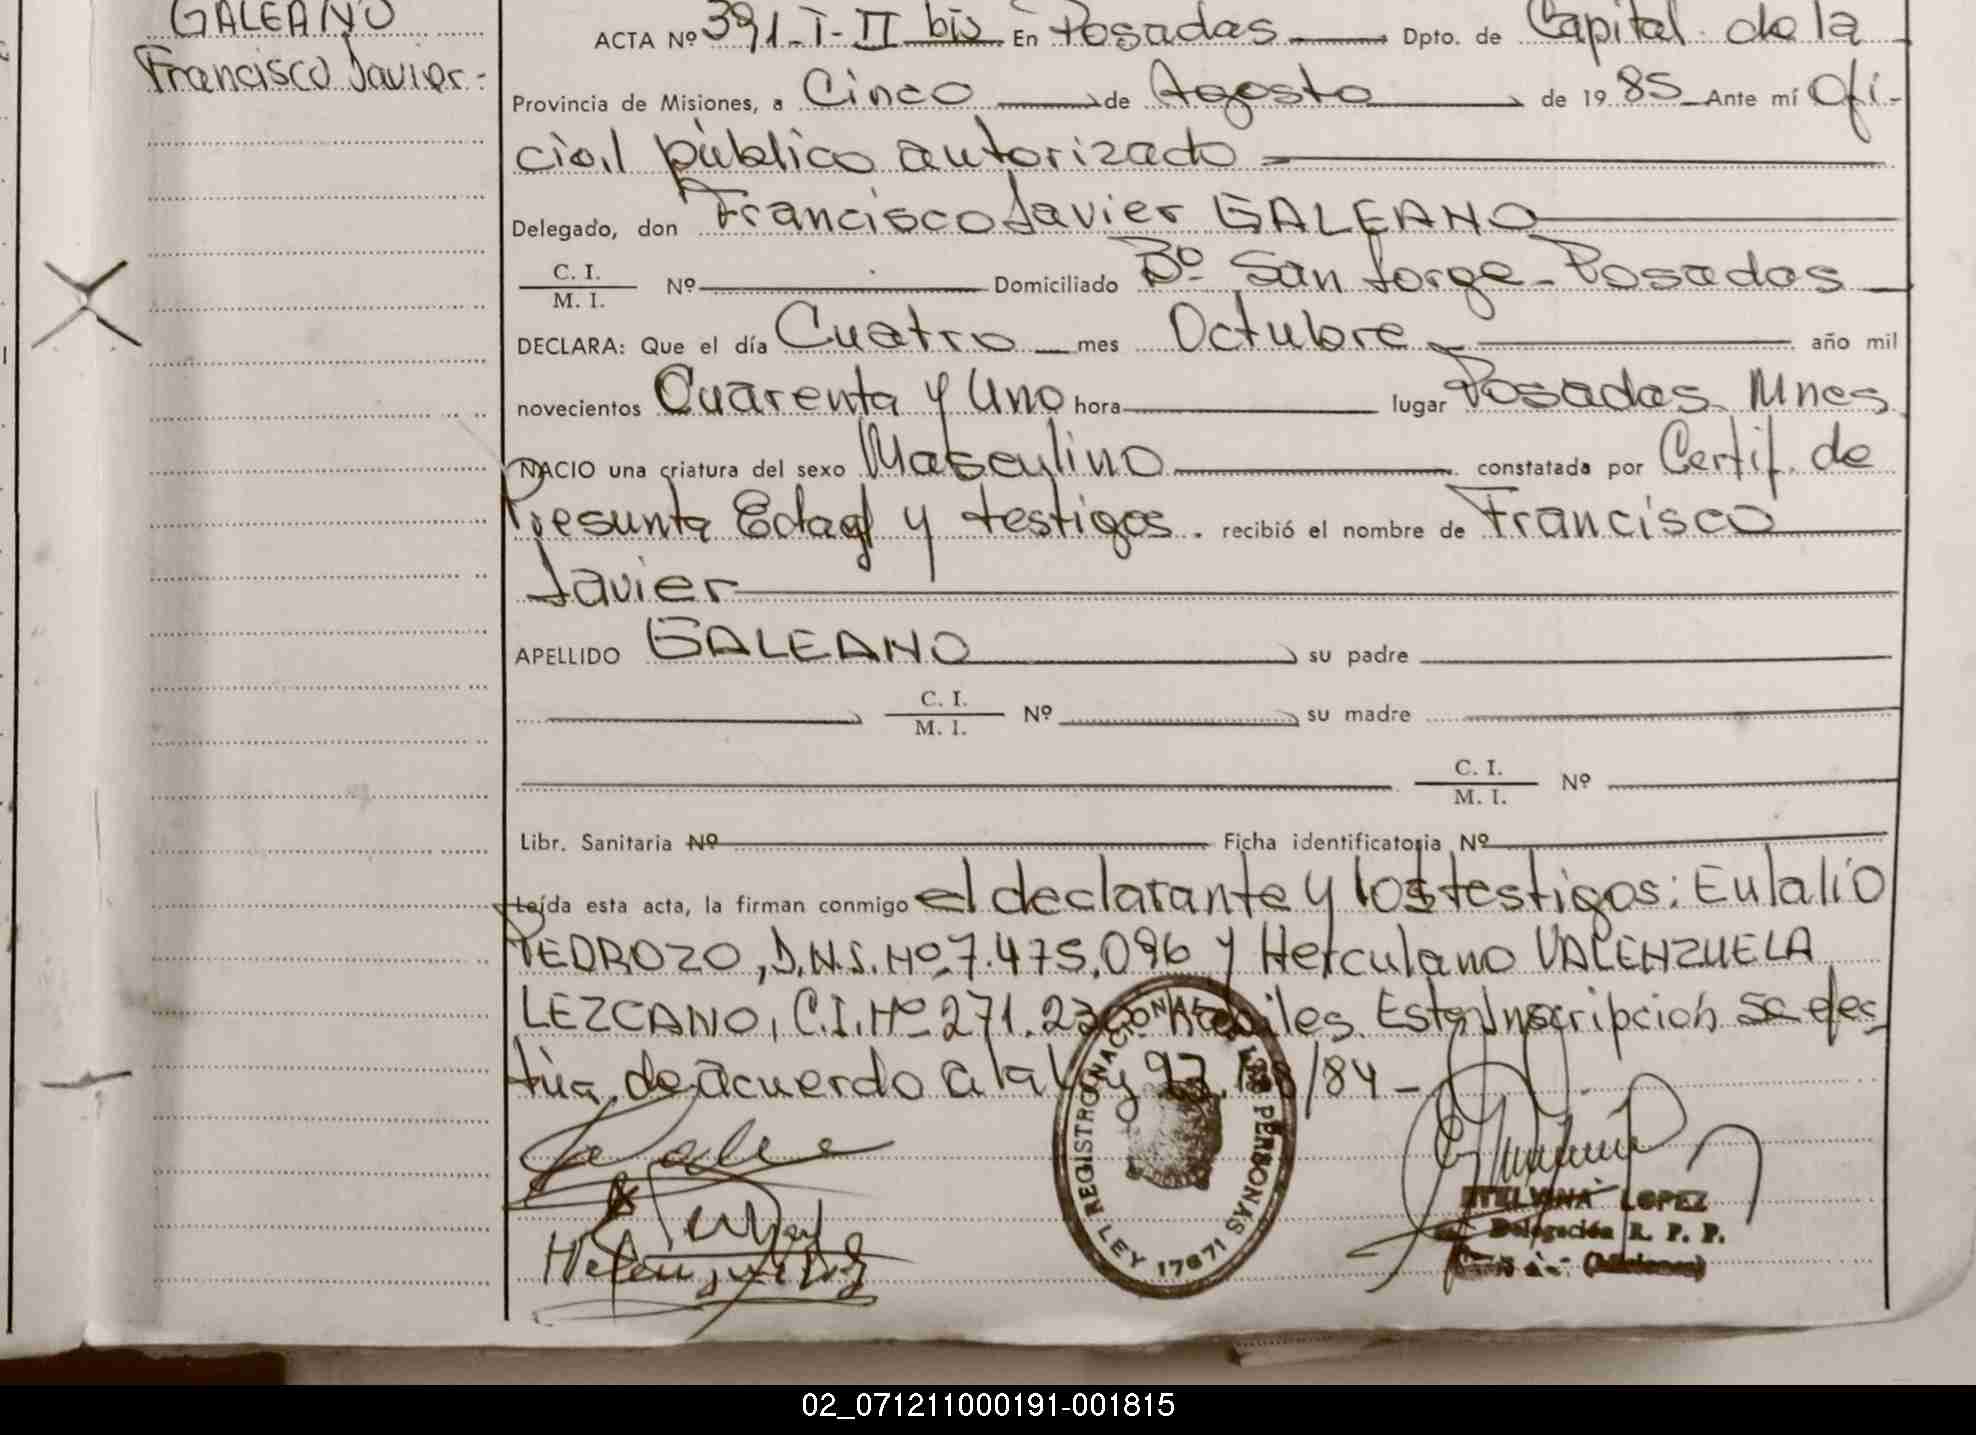 GALEANO
Francisco Javier.-
ACTA Nº 391-I-II bis En Posadas Dpto. de Capital de la
Provincia de Misiones, a Cinco de Agosto de 1985 Ante mí Ofi-
cial público autorizado
Delegado, don Francisco Javier GALEANO
C. I. / M. I. Nº Domiciliado Bº San Jorge - Posadas
DECLARA: Que el día Cuatro mes Octubre año mil
novecientos Cuarenta y Uno hora lugar Posadas Mnes
NACIO una criatura del sexo Masculino constatada por Certif. de
Presunta Edad y testigos. recibió el nombre de Francisco
Javier
APELLIDO GALEANO su padre
C. I. / M. I. Nº su madre
C. I. / M. I. Nº
Libr. Sanitaria Nº Ficha identificatoria Nº
Leída esta acta, la firman conmigo el declarante y los testigos: Eulalio
PEDROZO, D.N.I. Nº 7.475.096 y Herculano VALENZUELA
LEZCANO, C.I. Nº 271. Esta Inscripción se efec
túa de acuerdo a la /84 -
REGISTRO NACIONAL DE LAS PERSONAS
LEY 17671
ETELVINA LOPEZ
Delegación R. P. P.
(Misiones)
02_071211000191-001815